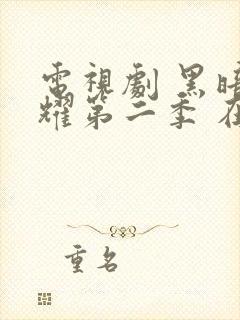 電視劇 黑暗
耀第二季 在
重名